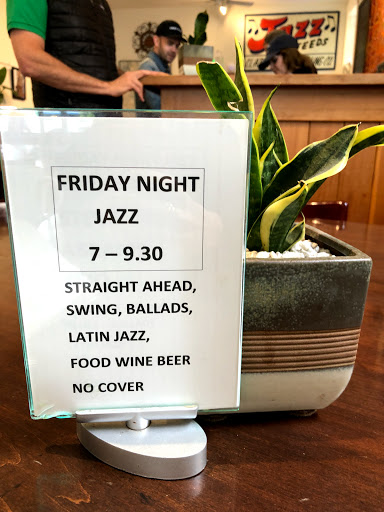 Jazz
SEEDS
FRIDAY NIGHT
JAZZ
7 – 9.30
STRAIGHT AHEAD,
SWING, BALLADS,
LATIN JAZZ,
FOOD WINE BEER
NO COVER